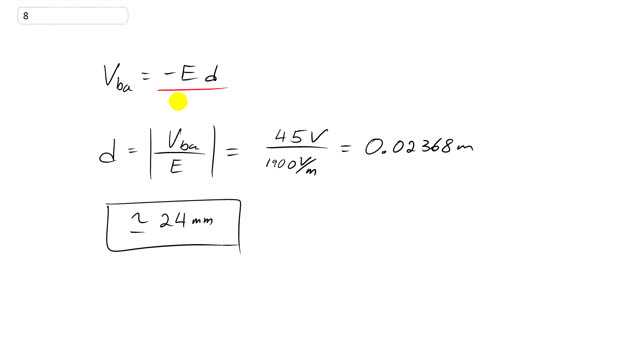 8
V_ba = -E d
d = |V_ba / E| = 45V / 1900 V/m = 0.02368m
≃ 24 mm